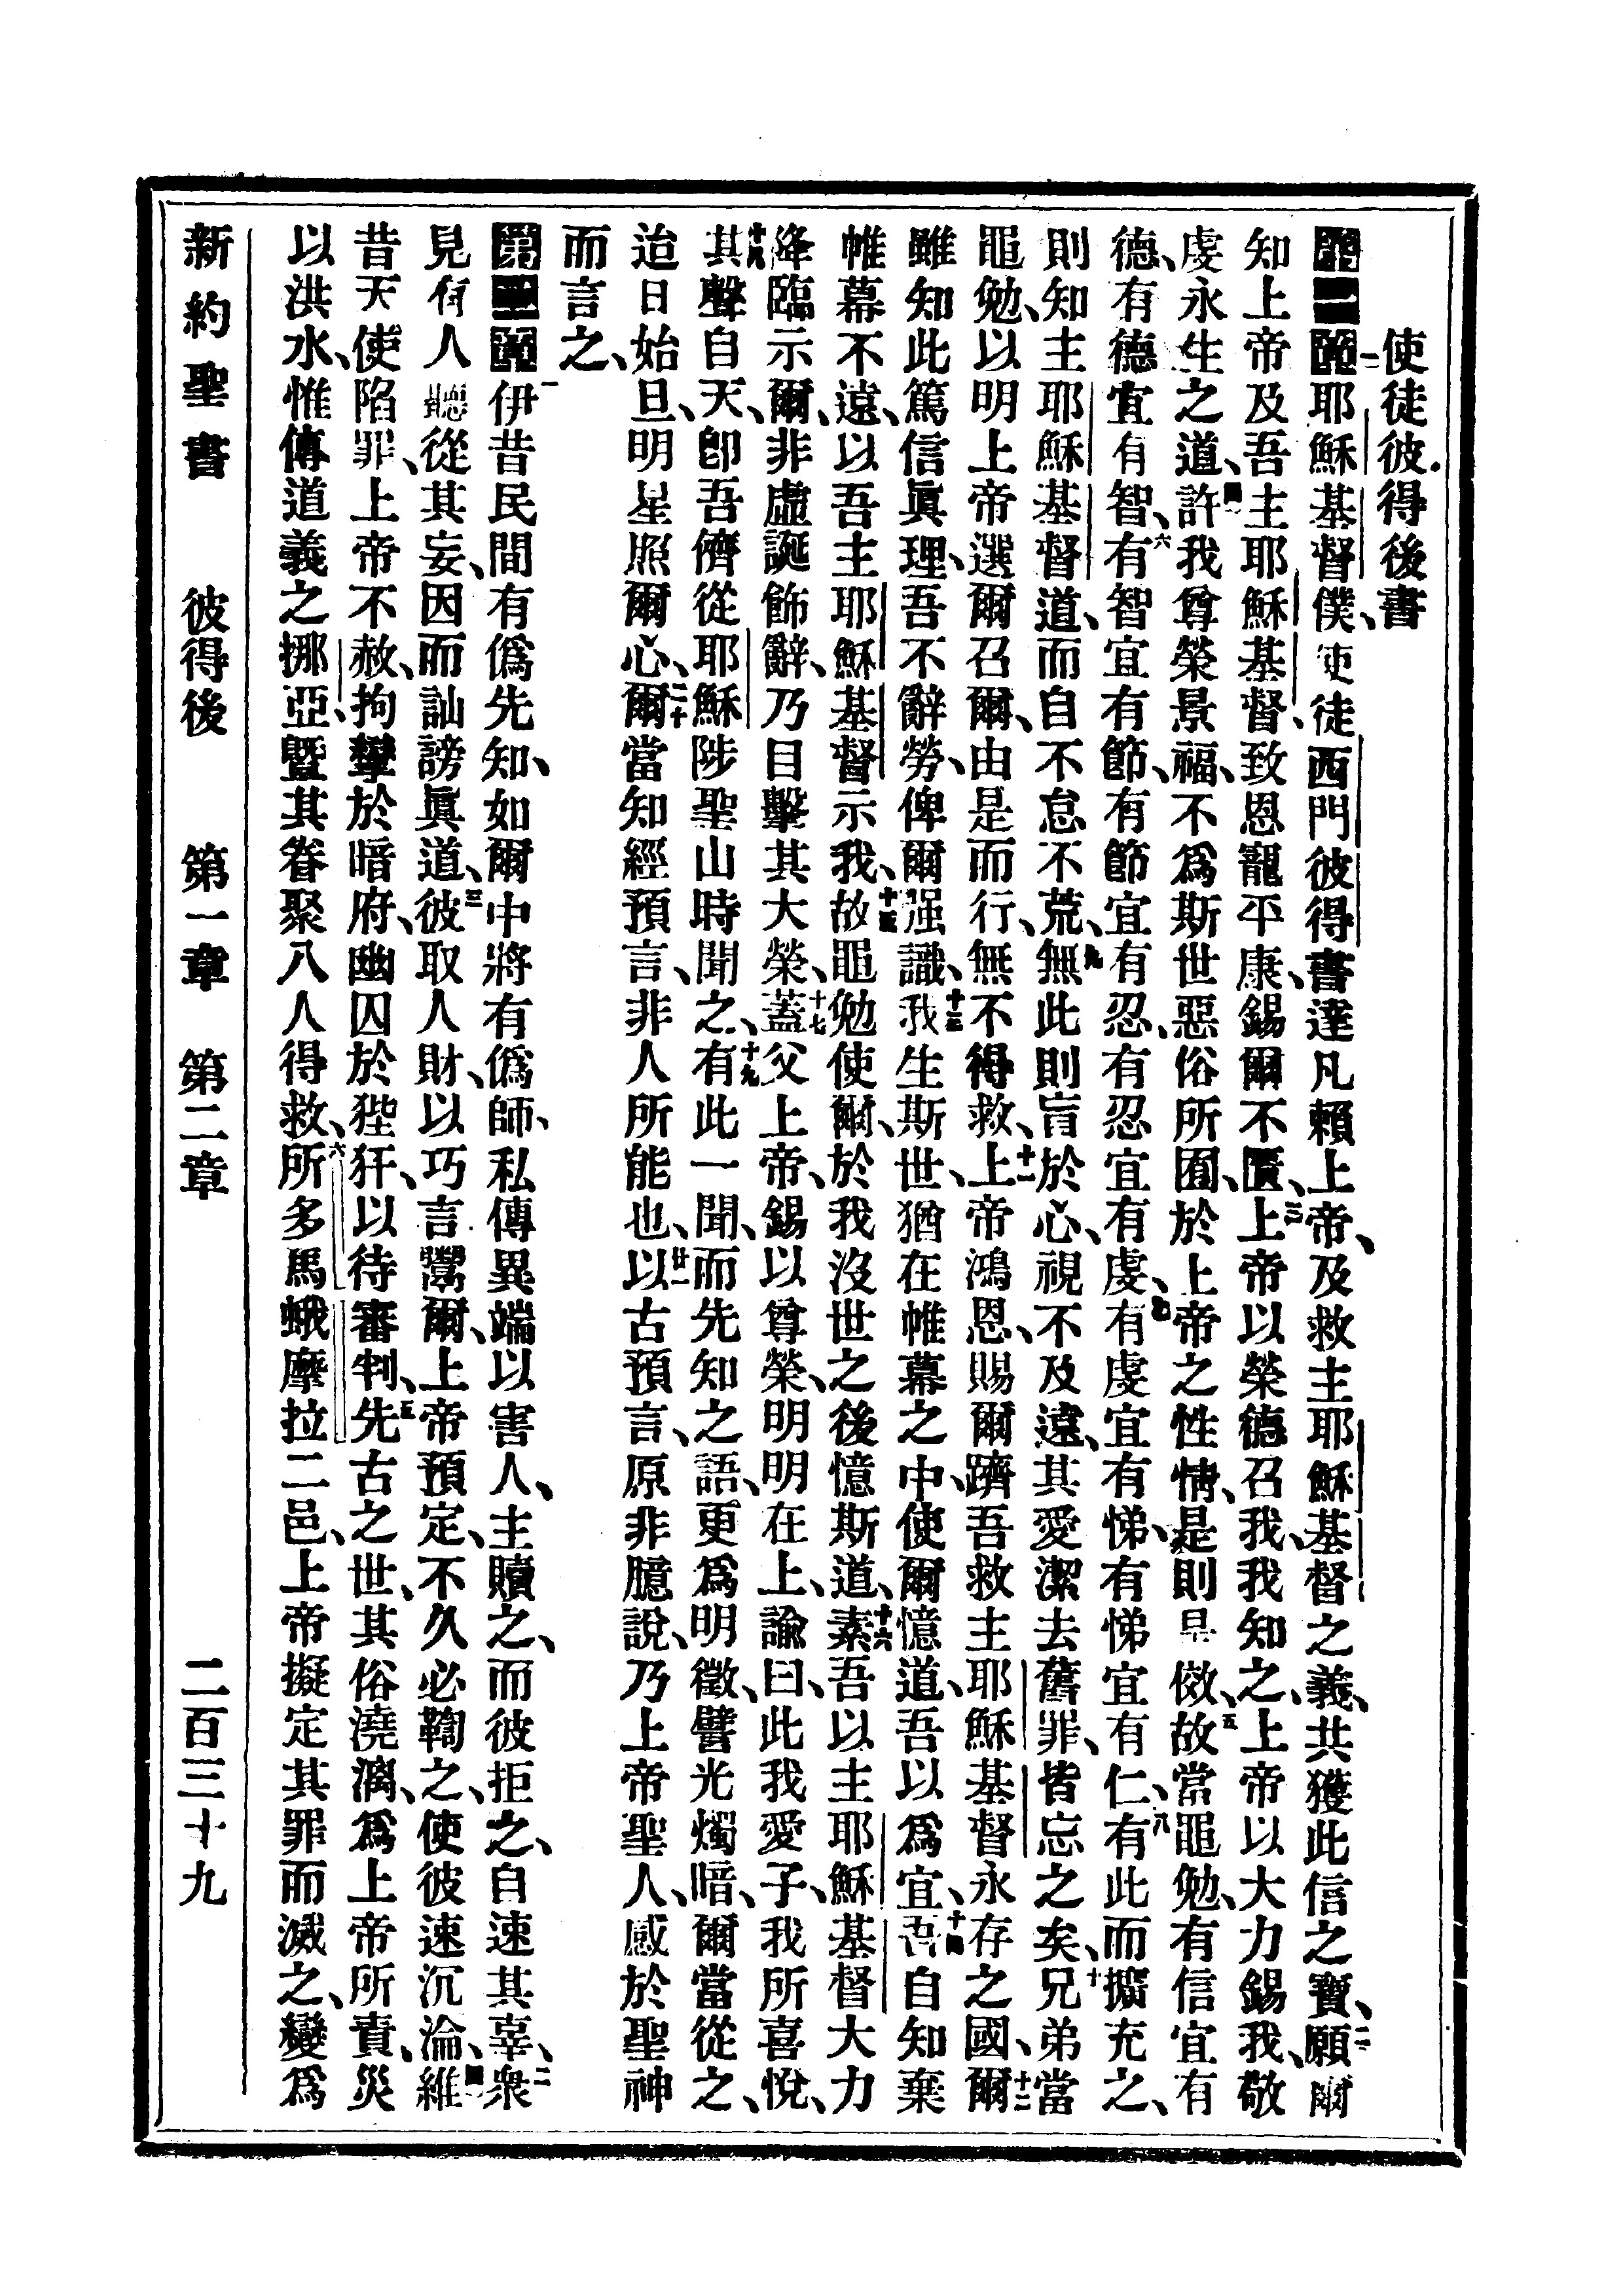 使徒彼得後書
第一章一耶穌基督僕、使徒西門彼得書達凡賴上帝、及救主耶穌基督之義、共獲此信之寶、二願爾
知上帝及吾主耶穌基督、致恩寵平康、錫爾不匱、三上帝以榮德召我、我知之、上帝以大力錫我、敬
虔永生之道、四許我尊榮景福、不爲斯世惡俗所囿、於上帝之性情、是則是傚、五故當黽勉、有信宜有
德、有德宜有智、六有智宜有節、有節宜有忍、有忍宜有虔、七有虔宜有悌、有悌宜有仁、八有此而擴充之、
則知主耶穌基督道、而自不怠不荒、九無此則盲於心、視不及遠、其愛潔去舊罪、皆忘之矣、十兄弟當
黽勉、以明上帝選爾召爾、由是而行、無不得救、十一上帝鴻恩、賜爾躋吾救主耶穌基督永存之國、十二爾
雖知此、篤信眞理、吾不辭勞、俾爾强識、十三我生斯世、猶在帷幕之中、使爾憶道、吾以爲宜、十四吾自知棄
帷幕不遠、以吾主耶穌基督示我、十五故黽勉使爾、於我沒世之後憶斯道、十六素吾以主耶穌基督大力
降臨示爾、非虛誕飾辭、乃目擊其大榮、十七蓋父上帝、錫以尊榮、明明在上、諭曰、此我愛子、我所喜悅、
十八其聲自天、卽吾儕從耶穌陟聖山時聞之、十九有此一聞、而先知之語、更爲明徵、譬光燭暗、爾當從之、
迨日始旦、明星照爾心、二十爾當知經預言、非人所能也、廿一以古預言、原非臆說、乃上帝聖人、感於聖神
而言之、
第二章一伊昔民間有僞先知、如爾中將有僞師、私傳異端以害人、主贖之、而彼拒之、自速其辜、二衆
見有人聽從其妄、因而訕謗眞道、三彼取人財、以巧言鬻爾、上帝預定、不久必鞫之、使彼速沉淪、四維
昔天使陷罪、上帝不赦、拘攣於暗府、幽囚於狴犴、以待審判、五先古之世、其俗澆漓、爲上帝所責、災
以洪水、惟傳道義之挪亞、曁其眷聚八人得救、六所多馬蛾摩拉二邑、上帝擬定其罪而滅之、變爲
新約聖書 彼得後 第一章 第二章 二百三十九